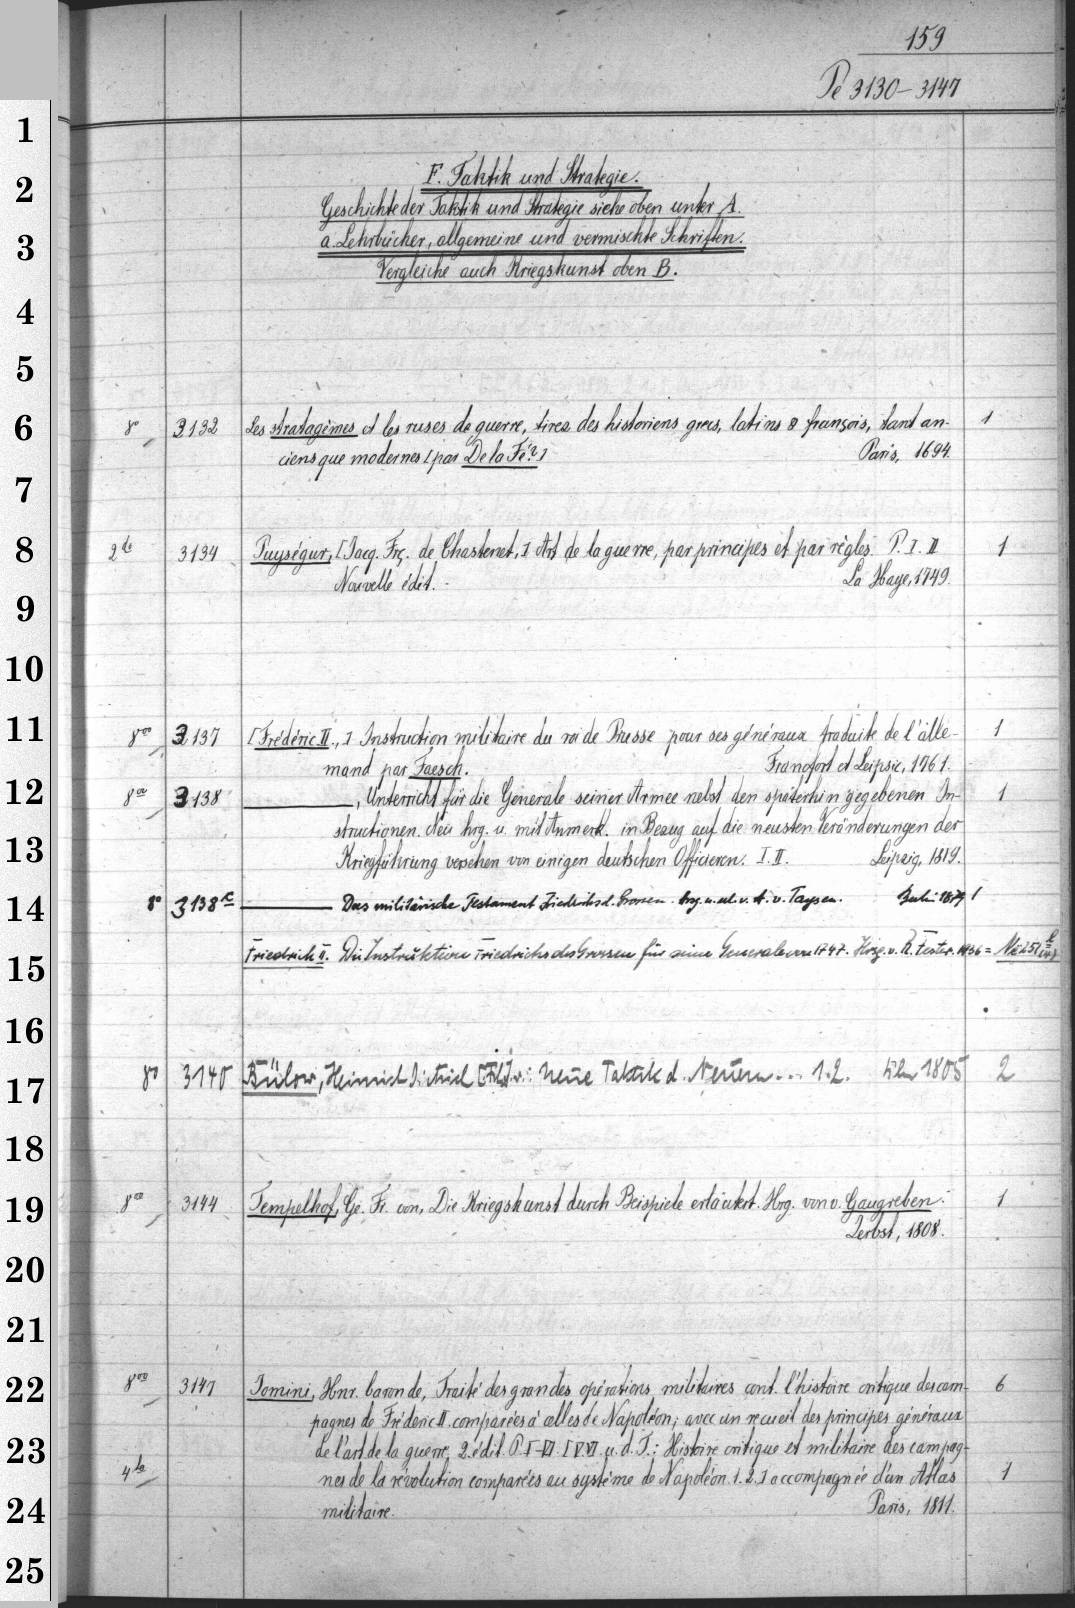 159
Pe 3130-3147
F. Taktik und Strategie.
Geschichte der Taktik und Strategie siehe oben unter A.
a. Lehrbücher, allgemeine und vermischte Schriften.
Vergleiche auch Kriegskunst oben B.
8° 3132 Les stratagèmes et les ruses de guerre, tirez des historiens grecs, latins & françois, tant an- 1
ciens que modernes [par De la Fér] Paris, 1694.
2to 3134 Puységur, [Jacq. Frç. de Chastenet,] Art de la guerre, par principes et par règles P. I. II 1
Nouvelle édit. - La Haye, 1749.
8vo 3137 [Frédéric II.,] Instruction militaire du roi de Prusse pour ses généraux traduite de l'alle- 1
mand par Faesch. Francfort et Leipsic, 1761.
8vo 3138 ———, Unterricht für die Generale seiner Armee nebst den späterhin gegebenen In- 1
structionen. Neu hrg. u. mit Anmerk. in Bezug auf die neusten Veränderungen der
Kriegführung versehen von einigen deutschen Officieren. I. II. Leipzig, 1819.
8° 3138 c ——— Das militärische Testament Friedrichs d. Grossen. hrg. u. erl. v. A. v. Taysen. Berlin 1879 1
Friedrich II. Die Instruktion Friedrichs des Grossen für seine Generale von 1747. Hrsg. v. R. Fester. 1936 =
8° 3140 Bülow, Heinrich Dietrich v.: Neue Taktik d. Neuern ... 1.2. 1805 2
8vo 3144 Tempelhof, Ge. Fr. von, Die Kriegskunst durch Beispiele erläutert. Hrg. von v. Gaugreben. 1
Zerbst, 1808.
8vo 3147 Jomini, Hnr. baron de, Traité des grandes opérations militaires cont. l'histoire critique des cam- 6
pagnes de Fréderic II. comparées à celles de Napoléon; avec un recueil des principes généraux
de l'art de la guerre, 2. édit. P. I-VI. [V. VI u. d. T.: Histoire critique et militaire des campag-
4to nes de la révolution comparées au système de Napoléon. 1. 2.] accompagnée d'un Atlas 1
militaire. Paris, 1811.
1
2
3
4
5
6
7
8
9
10
11
12
13
14
15
16
17
18
19
20
21
22
23
24
25